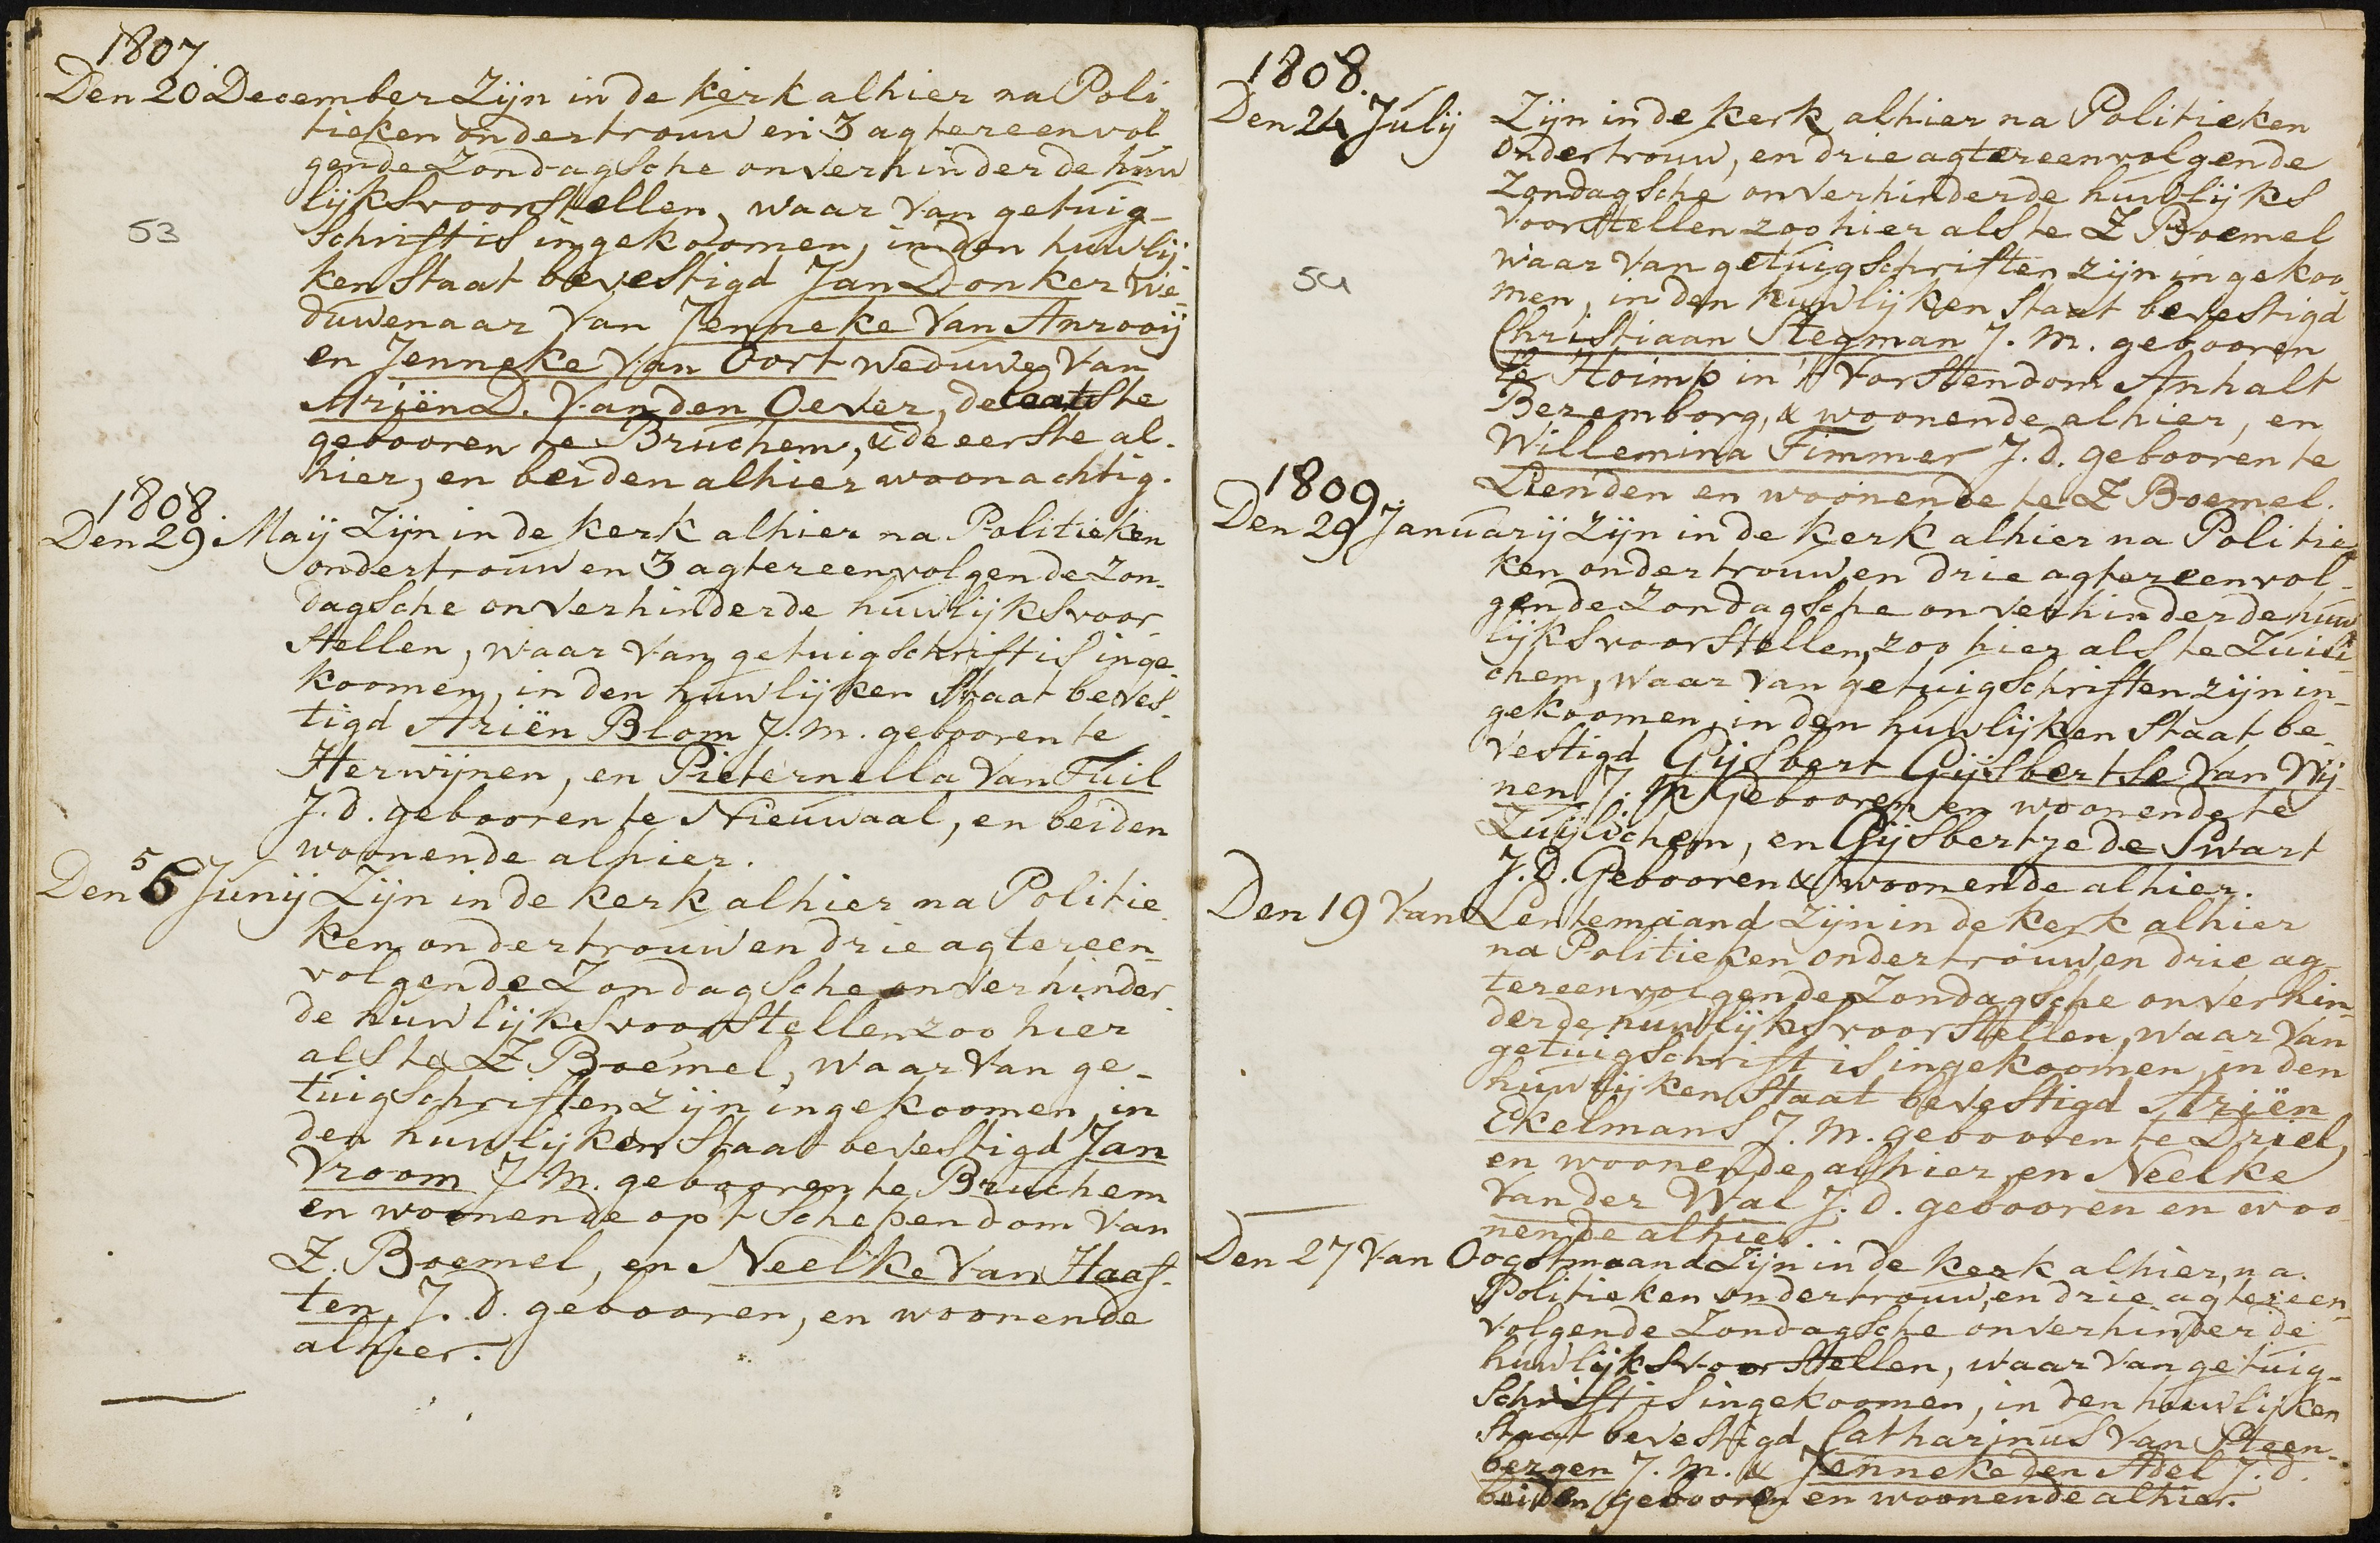 1807.
Den 20 December Zijn in de kerk alhier na Poli-
tieken ondertrouw en 3 agtereenvol
gende Zondagsche onverhinderde huw
lijksvoorstellen, waar van getuig-
53
schrift is ingekoomen, in den huwlij-
ken staat bevestigd Jan Donker we-
duwenaar van Jenneke van Anrooij
en Jenneke van Oort weduwe van
Ariën D. van den Oever, de laatste
gebooren te Bruchem, & de eerste al-
hier, en beiden alhier woonachtig.
1808.
Den 29 Maij Zijn in de kerk alhier na Politieken
ondertrouw en 3 agtereenvolgende Zon-
dagsche onverhinderde huwlijksvoor-
stellen, waar van getuigschrift is inge
koomen, in den huwlijken staat beves-
tigd Ariën Blom J. M. gebooren te
Herwijnen, en Pieternella van Tuil
J. d. gebooren te Nieuwaal, en beiden
woonende alhier.
Den 5 Junij Zijn in de kerk alhier na Politie
ken ondertrouw en drie agtereen-
volgende Zondagsche onverhinder
de huwlijksvoorstellen zoo hier
als te Z Boemel, waar van ge-
tuigschriften zijn ingekoomen, in
den huwlijken staat bevestigd Jan
Vroom J. M. gebooren te Bruchem
en woonende op 't Schependom van
Z. Boemel, en Neelke van Haaf-
ten, J. d. gebooren, en woonende
alhier.
1808.
Den 24 Julij Zijn in de kerk alhier na Politieken
ondertrouw, en drie agtereenvolgende
Zondagsche onverhinderde huwlijks
voorstellen zoo hier als te Z Boemel
waar van getuigschriften zijn ingekoo
54
men, in den huwlijken staat bevestigd
Christiaan Stegman J. M. gebooren
te Hoimp in 't vorstendom Anhalt
Beremborg, & woonende alhier, en
Willemina Timmer J. d. gebooren te
Lienden en woonende te Z Boemel.
1809.
Den 29 Januarij Zijn in de kerk alhier na Politie
ken ondertrouw en drie agtereenvol-
gende Zondagsche onverhinderde huw
lijksvoorstellen, zoo hier als te Zuili
chem, waar van getuigschriften zijn in-
gekoomen, in den huwlijken staat be-
vestigd Gijsbert Gijsbertse van Wij-
nen J. M Gebooren en woonende te
Zuijlichem, en Gijsbertje de Swart
J. D. Gebooren & woonende alhier.
Den 19 van Lentemaand Zijn in de kerk alhier
na Politieken ondertrouw en drie ag-
tereenvolgende Zondagsche onverhin-
derde huwlijksvoorstellen, waar van
getuigschrift is ingekoomen, in den
huwlijken staat bevestigd Ariën
Ekelmans J. M. gebooren te Driel,
en woonende alhier, en Neelke
van der Wal J. d. gebooren en woo
nende alhier
Den 27 van Oogstmaand Zijn in de kerk alhier, na
Politieken ondertrouw, en drie agtereen-
volgende Zondagsche onverhinderde
huwlijksvoorstellen, waar van getuig-
schrift is ingekoomen, in den huwlijken
staat bevestigd Catharinus van Steen-
bergen J. M. & Jenneke den Adel J. d.
beiden gebooren en woonende alhier.